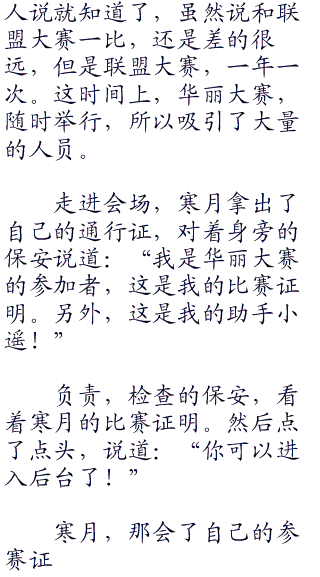 人说就知道了，虽然说和联
盟大赛一比，还是差的很
远，但是联盟大赛，一年一
次。这时间上，华丽大赛，
随时举行，所以吸引了大量
的人员。
走进会场，寒月拿出了
自己的通行证，对着身旁的
保安说道：“我是华丽大赛
的参加者，这是我的比赛证
明。另外，这是我的助手小
遥！”
负责，检查的保安，看
着寒月的比赛证明。然后点
了点头，说道：“你可以进
入后台了！”
寒月，那会了自己的参
赛证